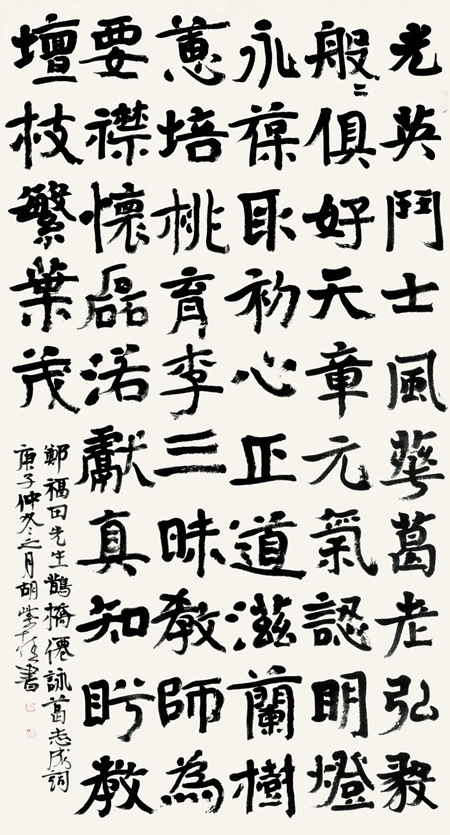 光英鬥士風華葛老弘毅
般〻俱好天章元氣認明燈
永葆取初心正道滋蘭樹
蕙培桃育李三昧教師為
要襟懷磊落獻真知盼教
壇枝繁葉茂
鄭福田先生鵲橋僊詠葛志成詞
庚子仲冬之月胡紫桂書